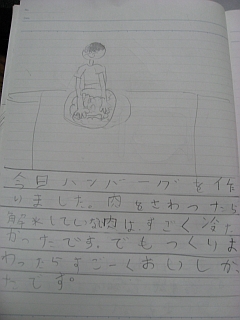 今日ハンバーグを作
りました。肉をさわったら
解氷している肉は、すごく冷た
かったです。でもつくりま
わったらすごーくおいしか
たです。